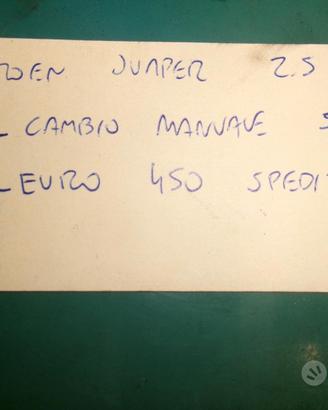 ROEN JUMPER 2.5
CAMBIO MANUALE S
EURO 450 SPEDI